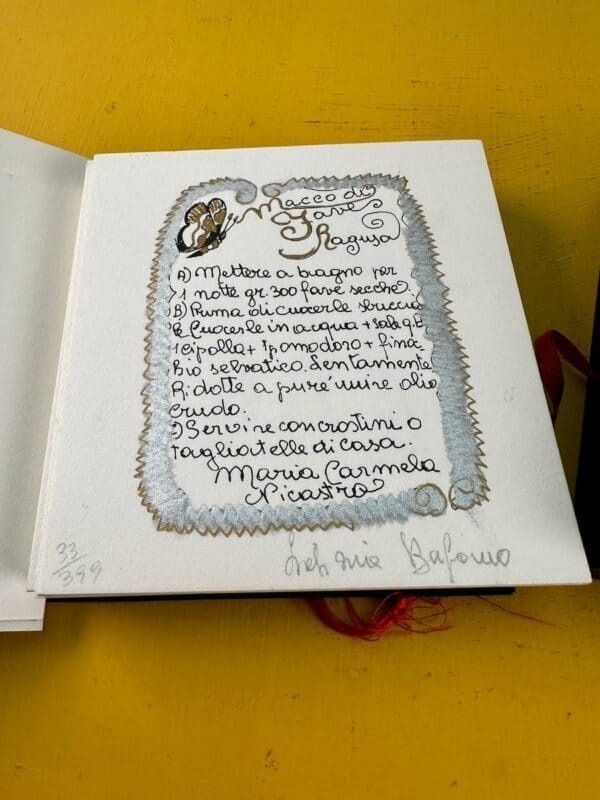 Macco di
Fave
Ragusa
A) Mettere a bagno per
1 notte gr. 300 fave secche.
B) Prima di cuocerle sbuccia
Cuocerle in acqua + sale q.b
1 cipolla + 1 pomodoro + finoc
Bio selvatico. Lentamente
Ridotte a puré unire olio
crudo.
Servire con crostini o
tagliatelle di casa.
Maria Carmela
Nicastro
33/399